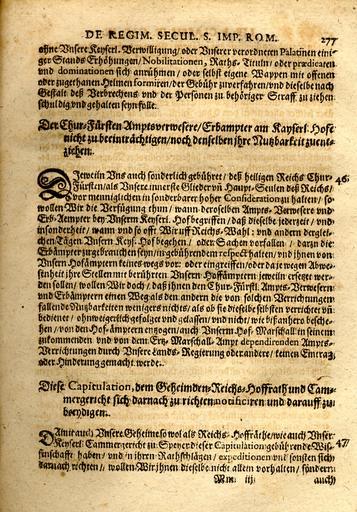 DE REGIM. SECUL. S. IMP. ROM. 277
ohne Unsere Keyserl. Verwilligung/ oder Unserer verordneten Palatinen eini-
ger Stands Erhöhungen/ Nobilitationen, Raths-Tituln/ oder prædicaten
und dominationen sich anrühmen/ oder selbst eigene Wappen mit offenen
oder zugethanen Helmen formiren/ der Gebühr zuverfahren/ und dieselbe nach
Gestalt deß Verbrechens und der Personen zu behöriger Straff zu ziehen
schuldig und gehalten seyn solle.
Der Chur-Fürsten Amptsverwesere/ Erbampter am Kayserl. Hofe
nicht zu beeinträchtigen/ noch denselben ihre Nutzbarkeit zuent-
ziehen.
Jeweiln Uns auch sonderlich gebühret/ deß heiligen Reichs Chur- 46.
Fürsten/ als Unsere innerste Glieder und Haupt-Seulen deß Reichs/
vor menniglichen in sonderbarer hoher Consideration zu halten/ so
wollen Wir die Verfügung thun/ wann deroselben Ampts-Verwesere und
Erb-Aempter bey Unserm Keyserl. Hof begriffen/ daß dieselbe jederzeit/ und
insonderheit/ wann und so offt Wir auff Reichs-Wahl- und andern derglei-
chen Tägen Unsern Keys. Hof begehen/ oder Sachen vorfallen/ darzu die
Erbämpter zugebrauchen seyn/ in gebührendem respect halten/ und ihnen von
Unsern Hofämptern keines wegs vor- oder eingreiffen/ oder da je wegen Abwe-
senheit ihre Stellen mit berührten Unsern Hofämptern jeweiln ersetzt wer-
den sollen/ wollen Wir doch/ daß ihnen den Chur-Fürstl. Ampts-Verwesern
und Erbämptern einen Weg als den andern die von solchen Verrichtungen
fallende Nutzbarkeiten weniger nichts/ als ob sie dieselbe selbsten verrichtet und
bedienet/ ohnweigerlich gefolget und gelassen/ und nicht/ wie bißanhero besche-
hen/ von den Hof-ämptern entzogen/ auch Unserm Hof-Marschall in seinem
zukommenden und von dem Ertz-Marschall-Ampt dependirenden Ampts-
Verrichtungen durch Unsere Lands-Regierung oder andere/ keinen Eintrag/
oder Hinderung gemacht werde.
Diese Capitulation, dem Geheimden-Reichs-Hoffrath und Cam-
mergericht sich darnach zu richten notificiren und darauff zu-
beeydigen.
Damit auch Unsere Geheime so wol als Reichs-Hoffräthe/ wie auch Unser 47.
Keyserl. Cammergericht zu Speyer dieser Capitulation gebührende Wis-
senschafft haben/ und in ihren Rathschlägen/ expeditionen und sonsten sich
darnach richten/ wollen Wir ihnen dieselbe nicht allein vorhalten/ sondern
Mm iij auch